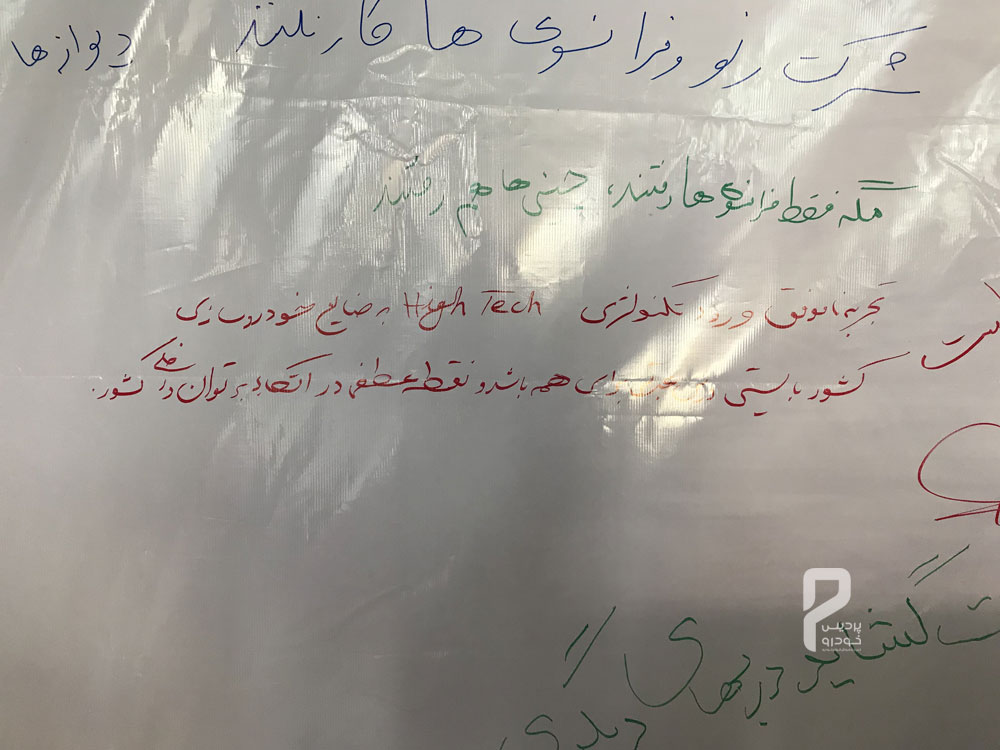 شرکت رنو و فرانسوی ها کار نکنند دیوازها
مگه فقط فرانسوی ها رفتند، چینی ها هم رفتند
تجربه ناموفق ورود تکنولوژی High Tech به صنایع خودروسازی
کشور بایستی برای همه باشد و نقطه عطفی در اتکاء بر توان داخلی کشور.
گشایو دربهای
دیگری
پردیس
خودرو